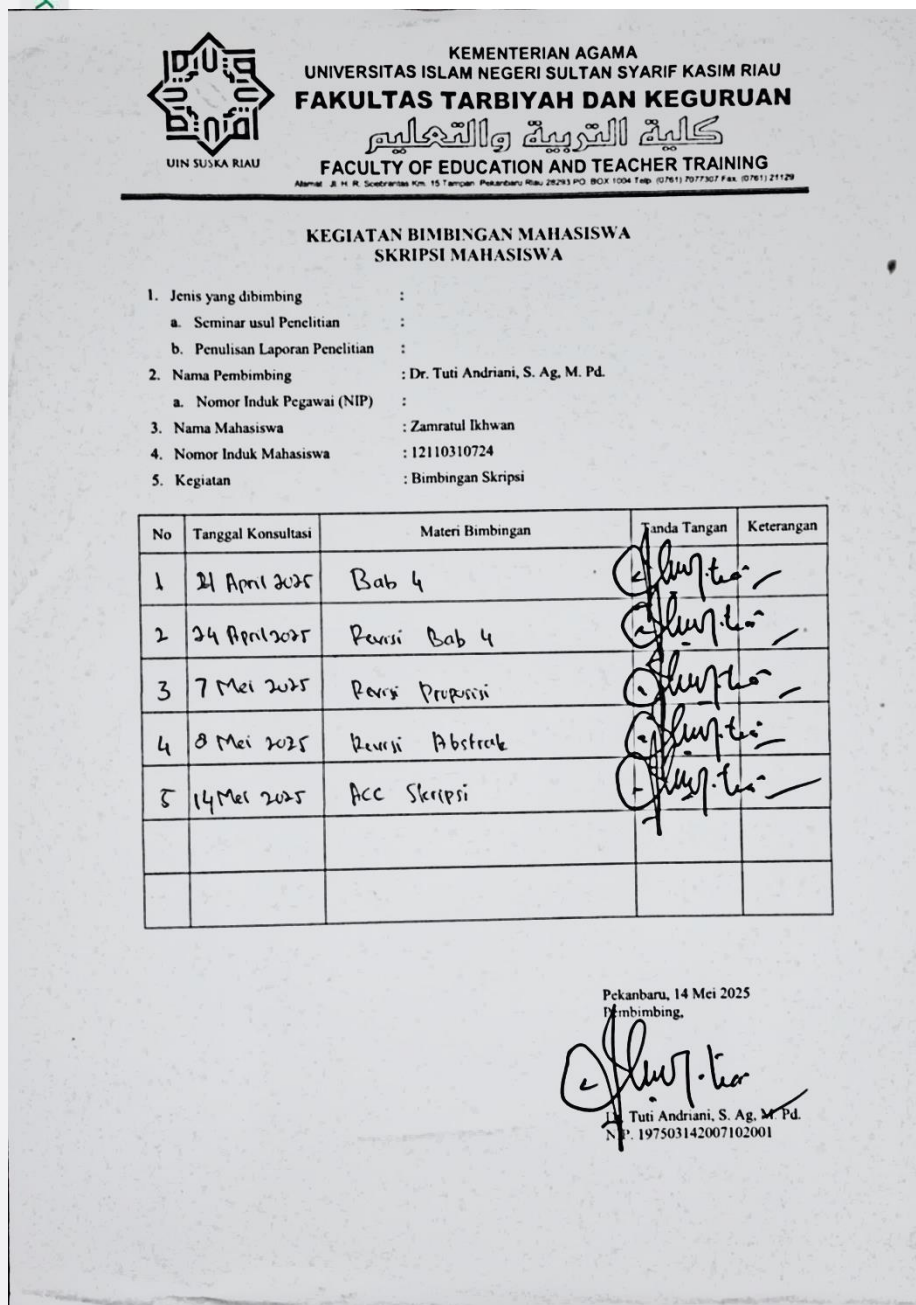 KEMENTERIAN AGAMA
UNIVERSITAS ISLAM NEGERI SULTAN SYARIF KASIM RIAU
FAKULTAS TARBIYAH DAN KEGURUAN
كلية التربية والتعليم
FACULTY OF EDUCATION AND TEACHER TRAINING
Alamat Jl. H. R. Soebrantas Km. 15 Tampan Pekanbaru Riau 28293 PO. BOX 1004 Telp. (0761) 7077307 Fax. (0761) 21129
UIN SUSKA RIAU
KEGIATAN BIMBINGAN MAHASISWA
SKRIPSI MAHASISWA
1. Jenis yang dibimbing :
a. Seminar usul Penelitian :
b. Penulisan Laporan Penelitian :
2. Nama Pembimbing : Dr. Tuti Andriani, S. Ag, M. Pd.
a. Nomor Induk Pegawai (NIP) :
3. Nama Mahasiswa : Zamratul Ikhwan
4. Nomor Induk Mahasiswa : 12110310724
5. Kegiatan : Bimbingan Skripsi
No Tanggal Konsultasi Materi Bimbingan Tanda Tangan Keterangan
1 21 April 2025 Bab 4
2 24 April 2025 Revisi Bab 4
3 7 Mei 2025 Revisi Proposisi
4 8 Mei 2025 Revisi Abstrak
5 14 Mei 2025 ACC Skripsi
Pekanbaru, 14 Mei 2025
Pembimbing,
Dr. Tuti Andriani, S. Ag, M. Pd.
NIP. 197503142007102001